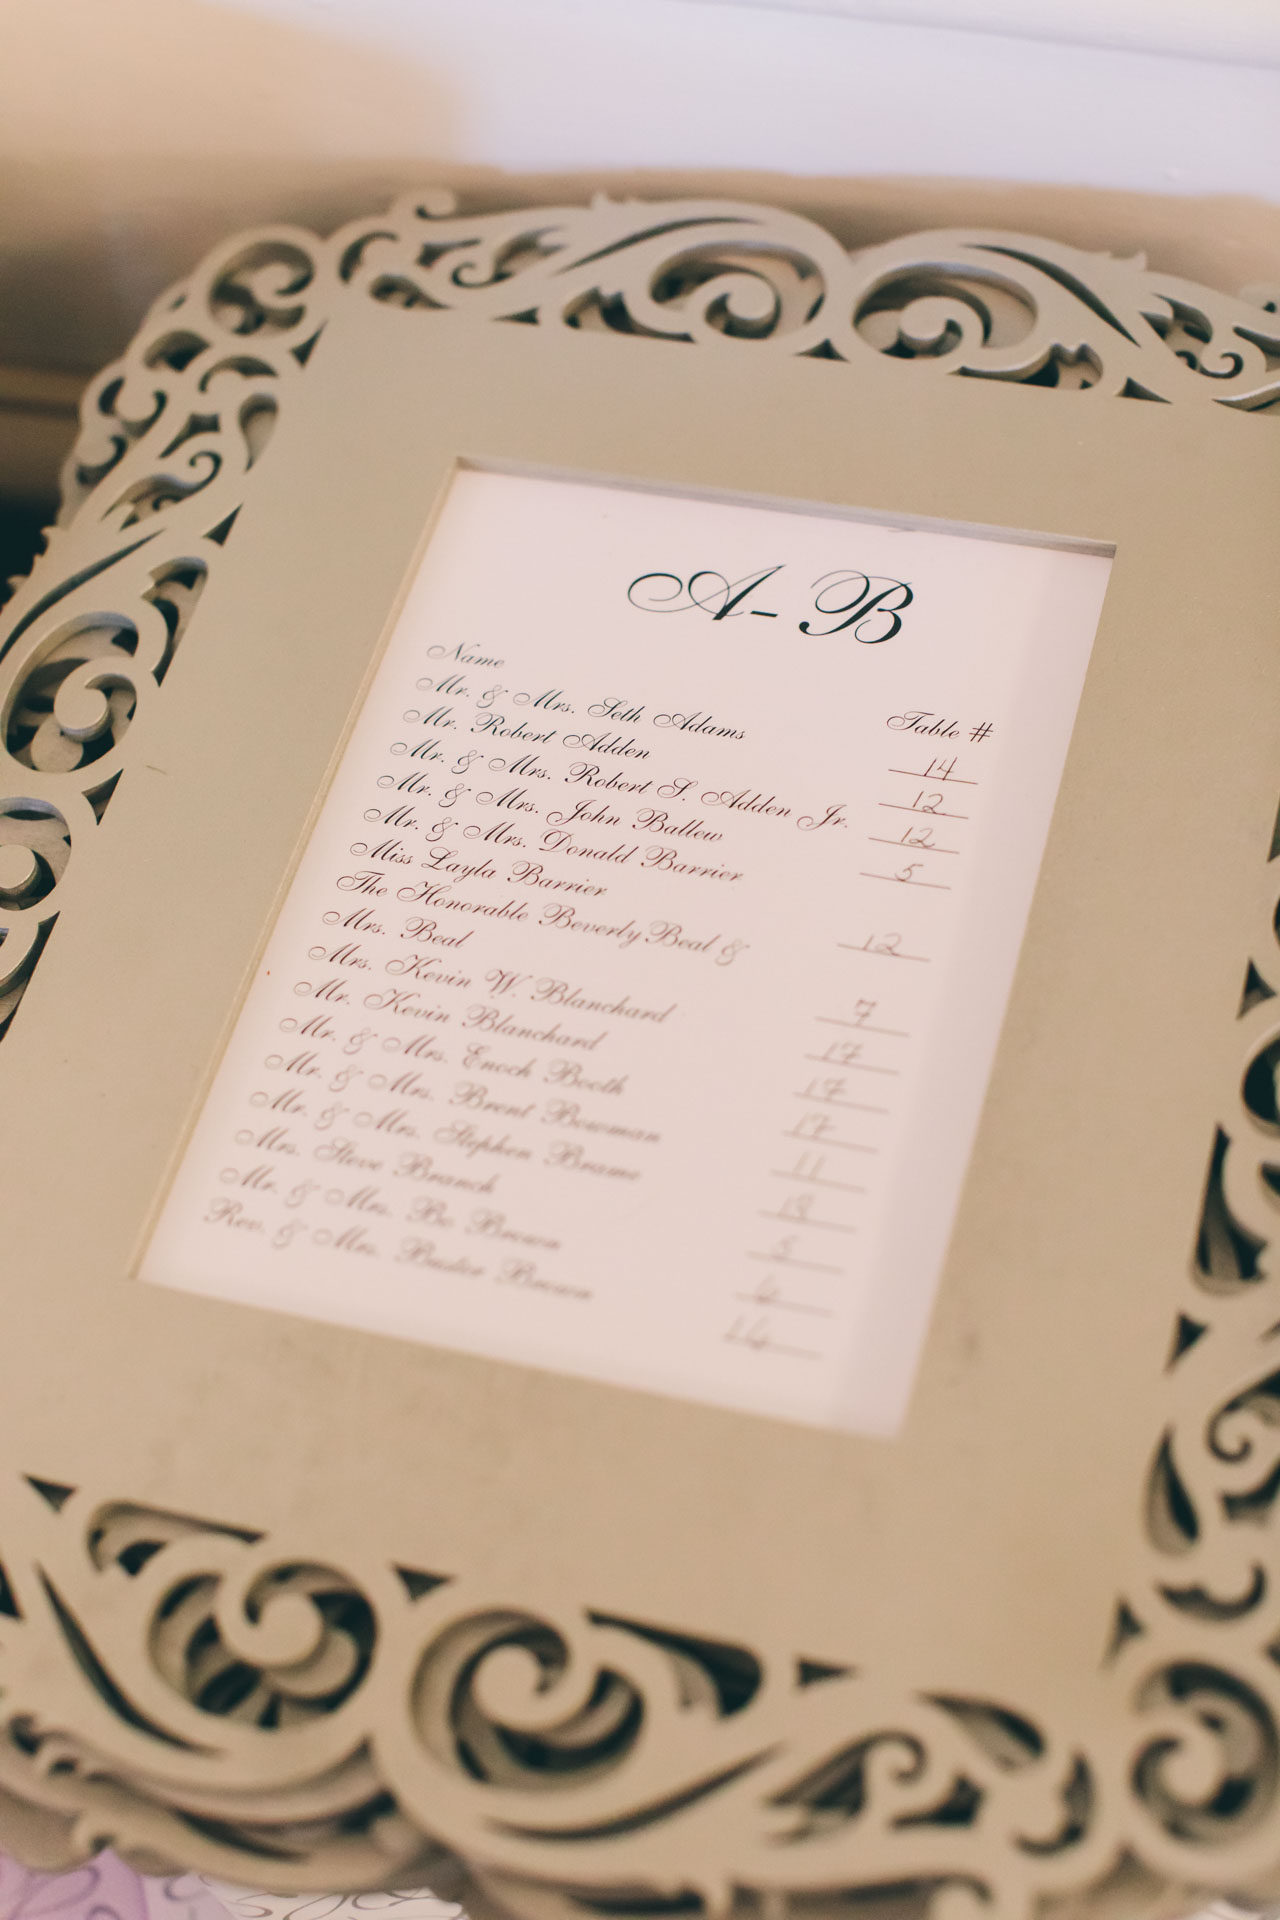 A-B
Name Table #
Mr. & Mrs. Seth Adams 14
Mr. Robert Adden 12
Mr. & Mrs. Robert S. Adden Jr. 12
Mr. & Mrs. John Ballew 5
Mr. & Mrs. Donald Barrier
Miss Layla Barrier 12
The Honorable Beverly Beal &
Mrs. Beal 7
Mrs. Kevin W. Blanchard 17
Mr. Kevin Blanchard 17
Mr. & Mrs. Enoch Booth 17
Mr. & Mrs. Brent Bowman 11
Mr. & Mrs. Stephen Brame
Mrs. Steve Branch 5
Mr. & Mrs. Bo Brown 6
Rev. & Mrs. Buster Brown